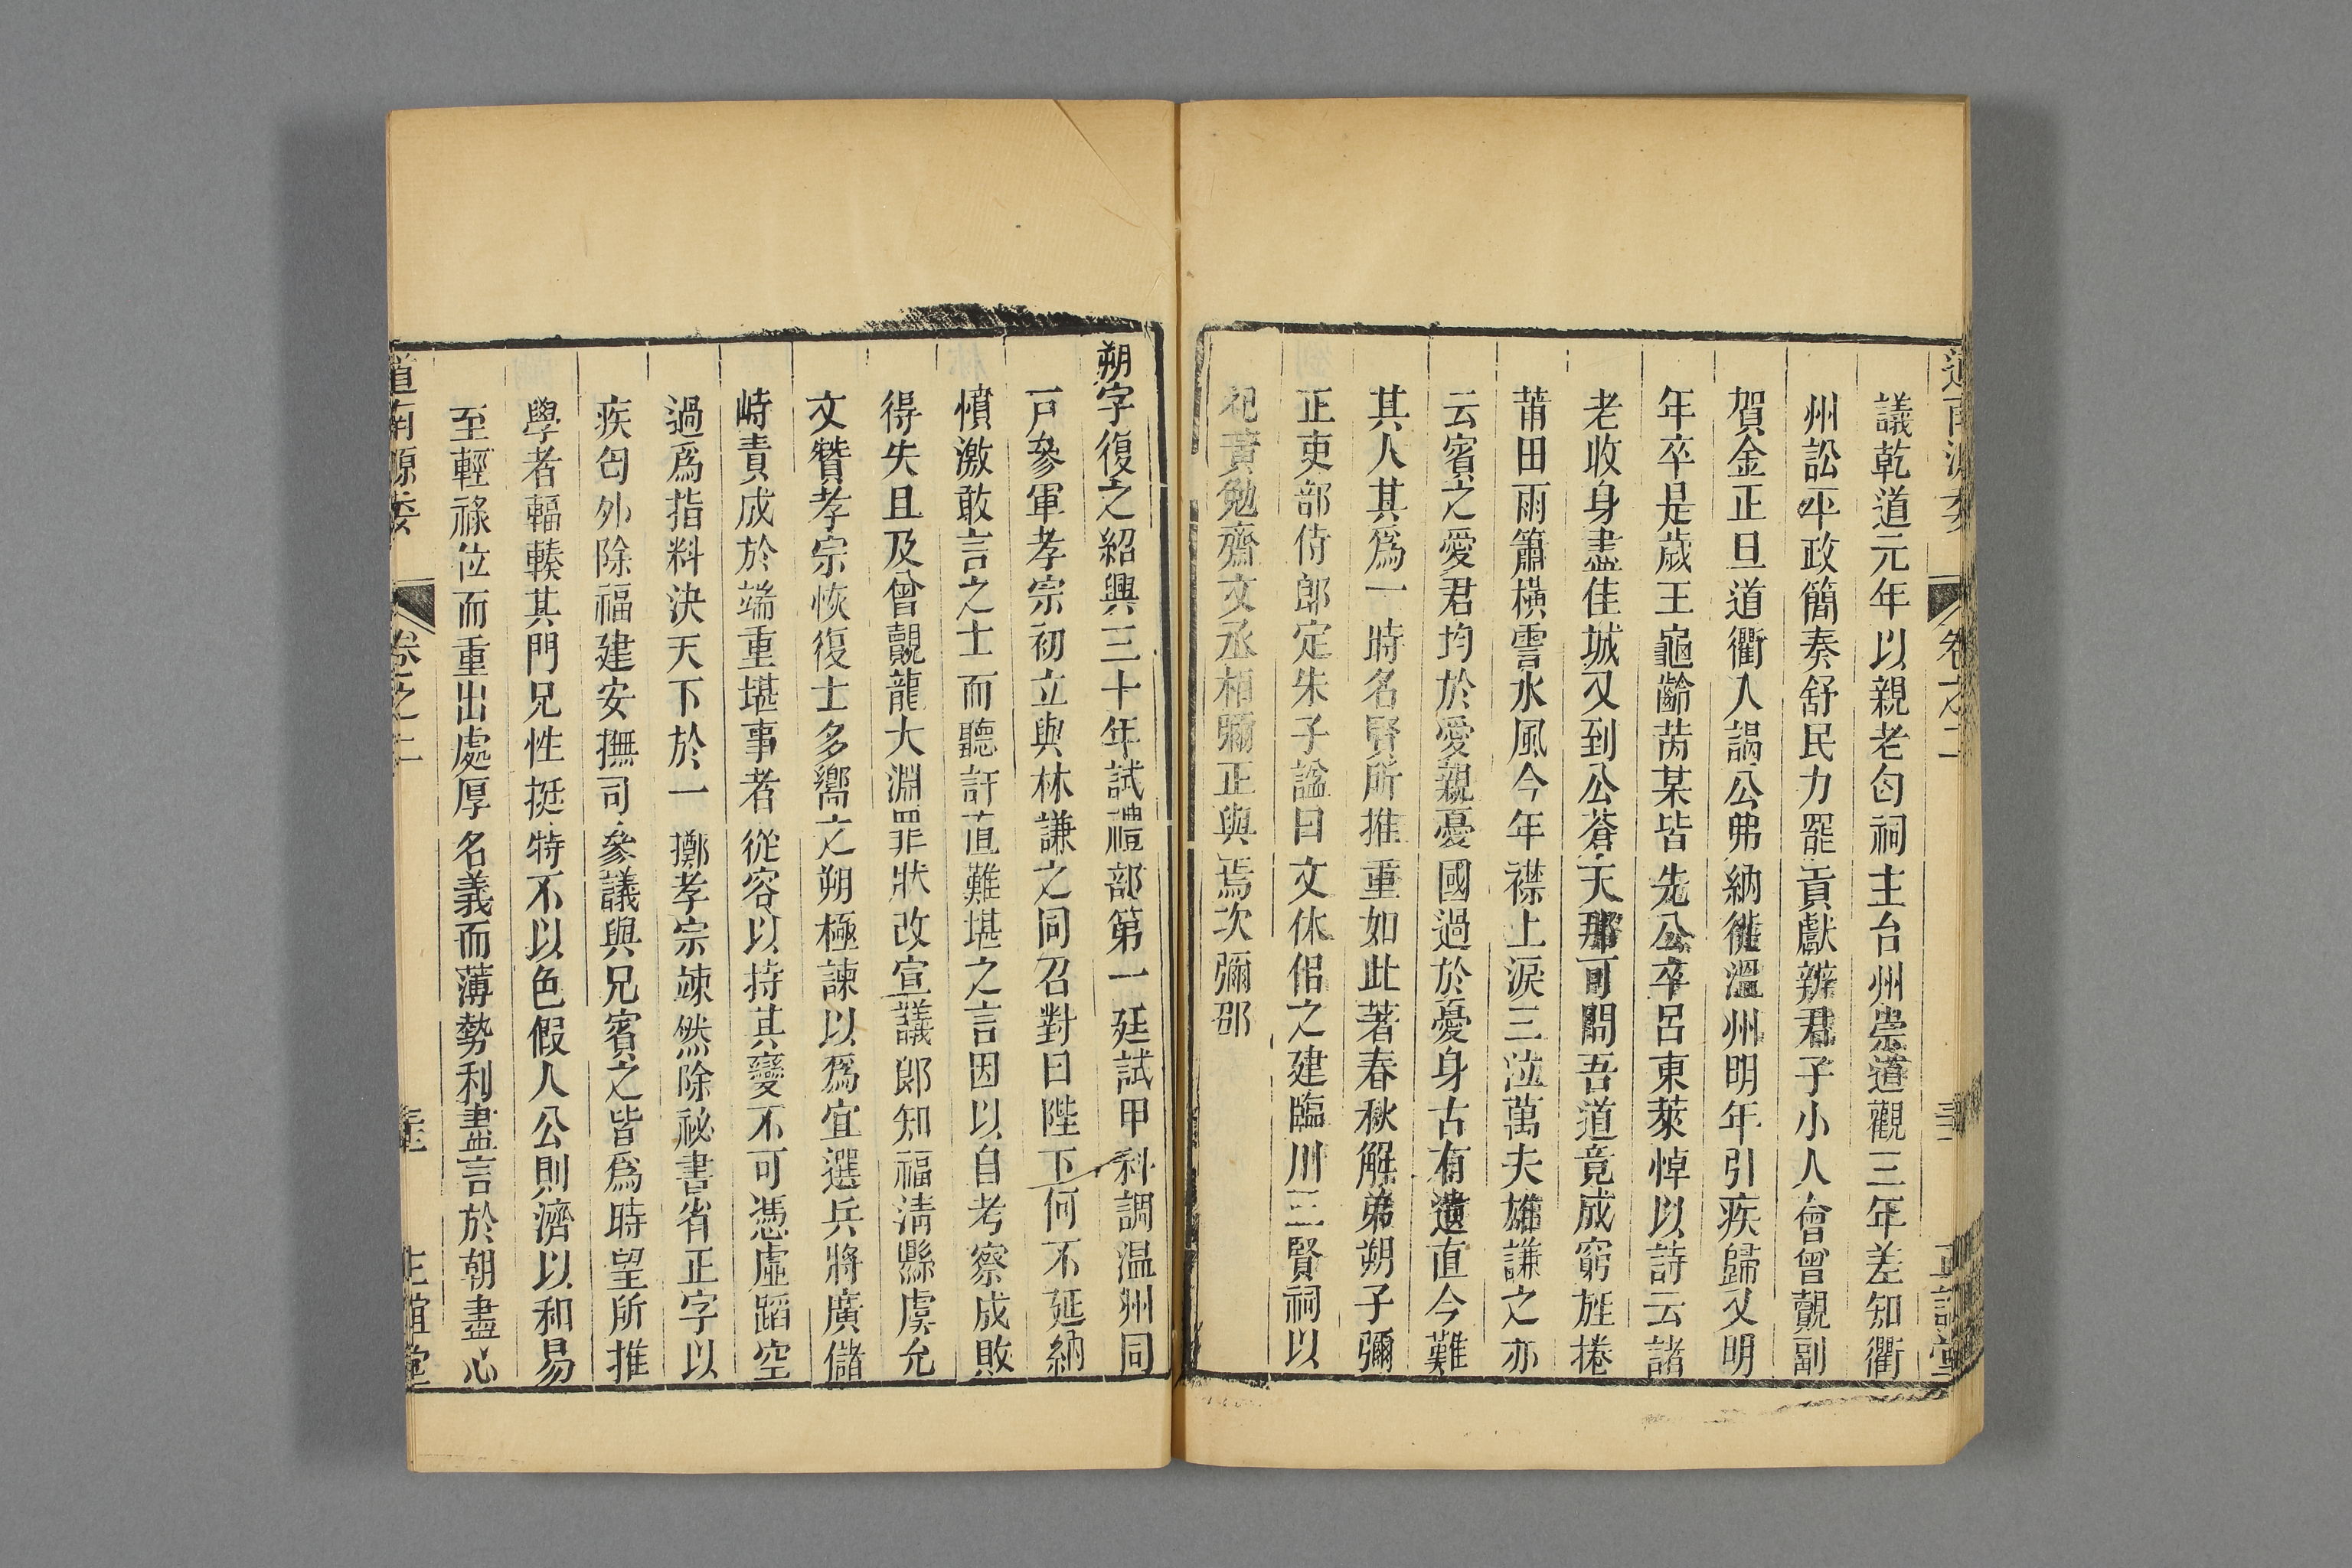 道南源委 卷之二 正誼堂
議乾道元年以親老匄祠主台州崇道觀三年差知衢
州訟平政簡奏舒民力罷貢獻辨君子小人會曾覿副
賀金正旦道衢人謁公弗納徙溫州明年引疾歸又明
年卒是歲王龜齡芮某皆先公卒呂東萊悼以詩云諸
老收身盡佳城又到公蒼天那可問吾道竟成窮旌捲
莆田雨簫橫霅水風今年襟上淚三泣萬夫雄謙之亦
云賓之愛君均於愛親憂國過於憂身古有遺直今難
其人其爲一時名賢所推重如此著春秋解弟朔子彌
正吏部侍郎定朱子諡曰文休侶之建臨川三賢祠以
祀黃勉齋文丞相彌正與焉次彌邵
朔字復之紹興三十年試禮部第一廷試甲科調温州同
戸參軍孝宗初立與林謙之同召對曰陛下何不延納
憤激敢言之士而聽訐直難堪之言因以自考察成敗
得失且及曾覿龍大淵罪狀改宣議郎知福淸縣虞允
文贊孝宗恢復士多嚮之朔極諫以爲宜選兵將廣儲
峙責成於端重堪事者從容以持其變不可憑虛蹈空
過爲指料決天下於一擲孝宗竦然除祕書省正字以
疾匄外除福建安撫司參議與兄賓之皆爲時望所推
學者輻輳其門兄性挺特不以色假人公則濟以和易
至輕祿位而重出處厚名義而薄勢利盡言於朝盡心
道南源委 卷之二 正誼堂